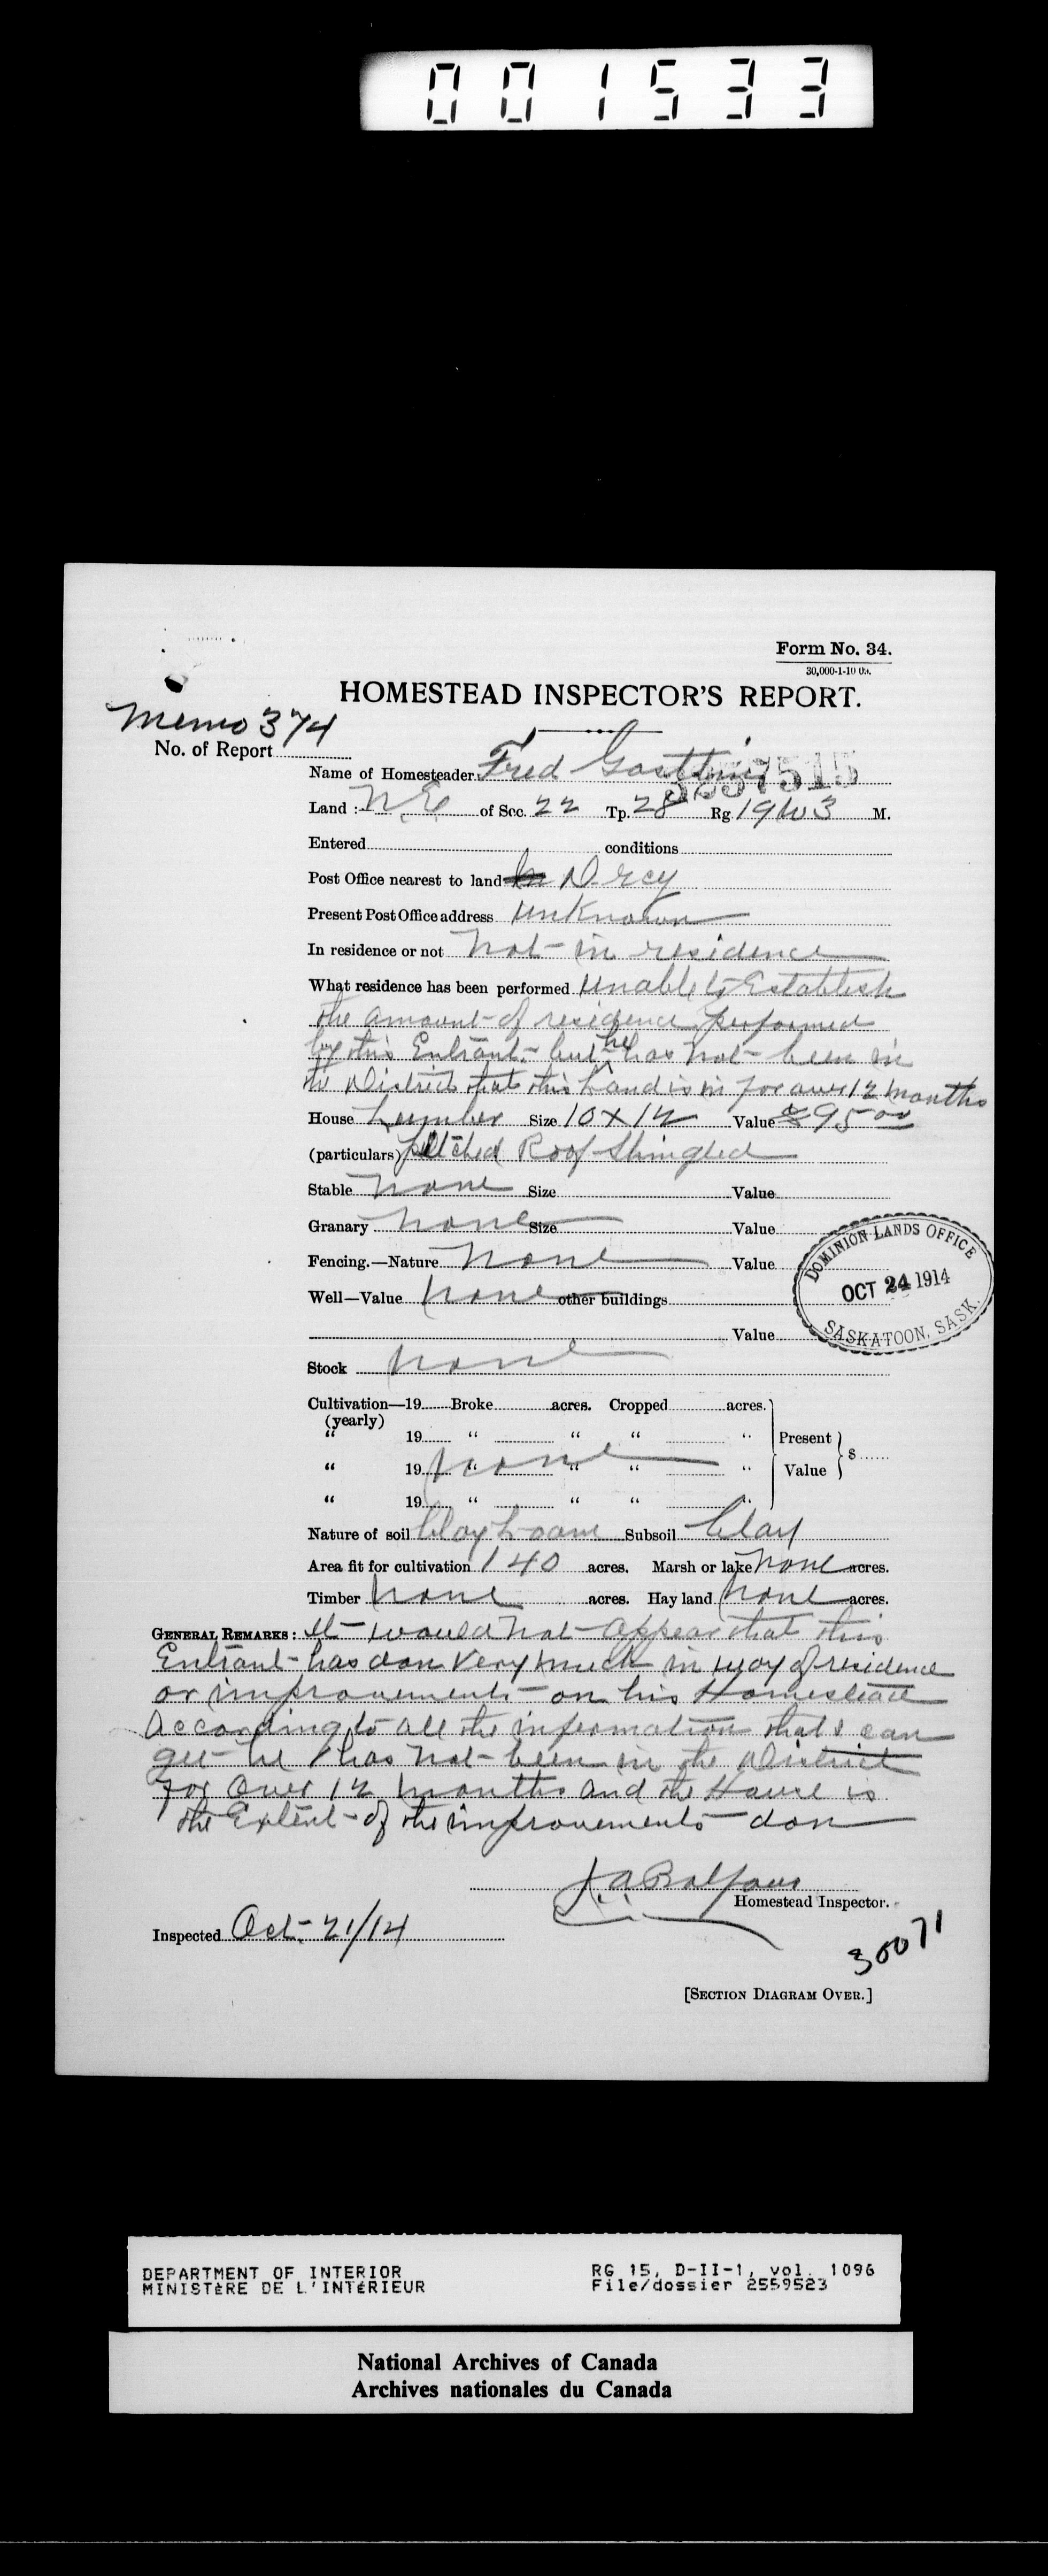 001533
Form No. 34.
30,000-1-10
HOMESTEAD INSPECTOR'S REPORT.
Memo 374
No. of Report
Name of Homesteader Fred
3257515
Land: N E of Sec. 22 Tp. 28 Rg 19 W 3 M.
Entered conditions
Post Office nearest to land D-rcy
Present Post Office address Unknown
In residence or not Not in residence
What residence has been performed Unable to Establish
the amount of residence performed
by this Entrant - but he has not been in
the District that this Land is in for over 12 months
House Lumber Size 10 x 12 Value $95 00
(particulars) pitched Roof Shingled
Stable none Size Value
Granary none Size Value
Fencing.—Nature none Value
Well—Value none other buildings
Value
DOMINION LANDS OFFICE
OCT 24 1914
SASKATOON, SASK.
Stock none
Cultivation—19 Broke acres. Cropped acres.
(yearly)
" 19 " " " " Present
" 19 none " " " " Value } $
" 19 " " " "
Nature of soil Clay Loam Subsoil Clay
Area fit for cultivation 140 acres. Marsh or lake none acres.
Timber none acres. Hay land none acres.
GENERAL REMARKS: It would not appear that this
Entrant has don very much in way of residence
or improvements on his Homestead
According to all the information that I can
get he has not been in the District
for over 12 months and the House is
the Extent of the improvements don
J. A. Balfour
Homestead Inspector.
Inspected Oct. 21/14
30071
[SECTION DIAGRAM OVER.]
DEPARTMENT OF INTERIOR RG 15, D-II-1, vol. 1096
MINISTÈRE DE L'INTÉRIEUR File/dossier 2559523
National Archives of Canada
Archives nationales du Canada